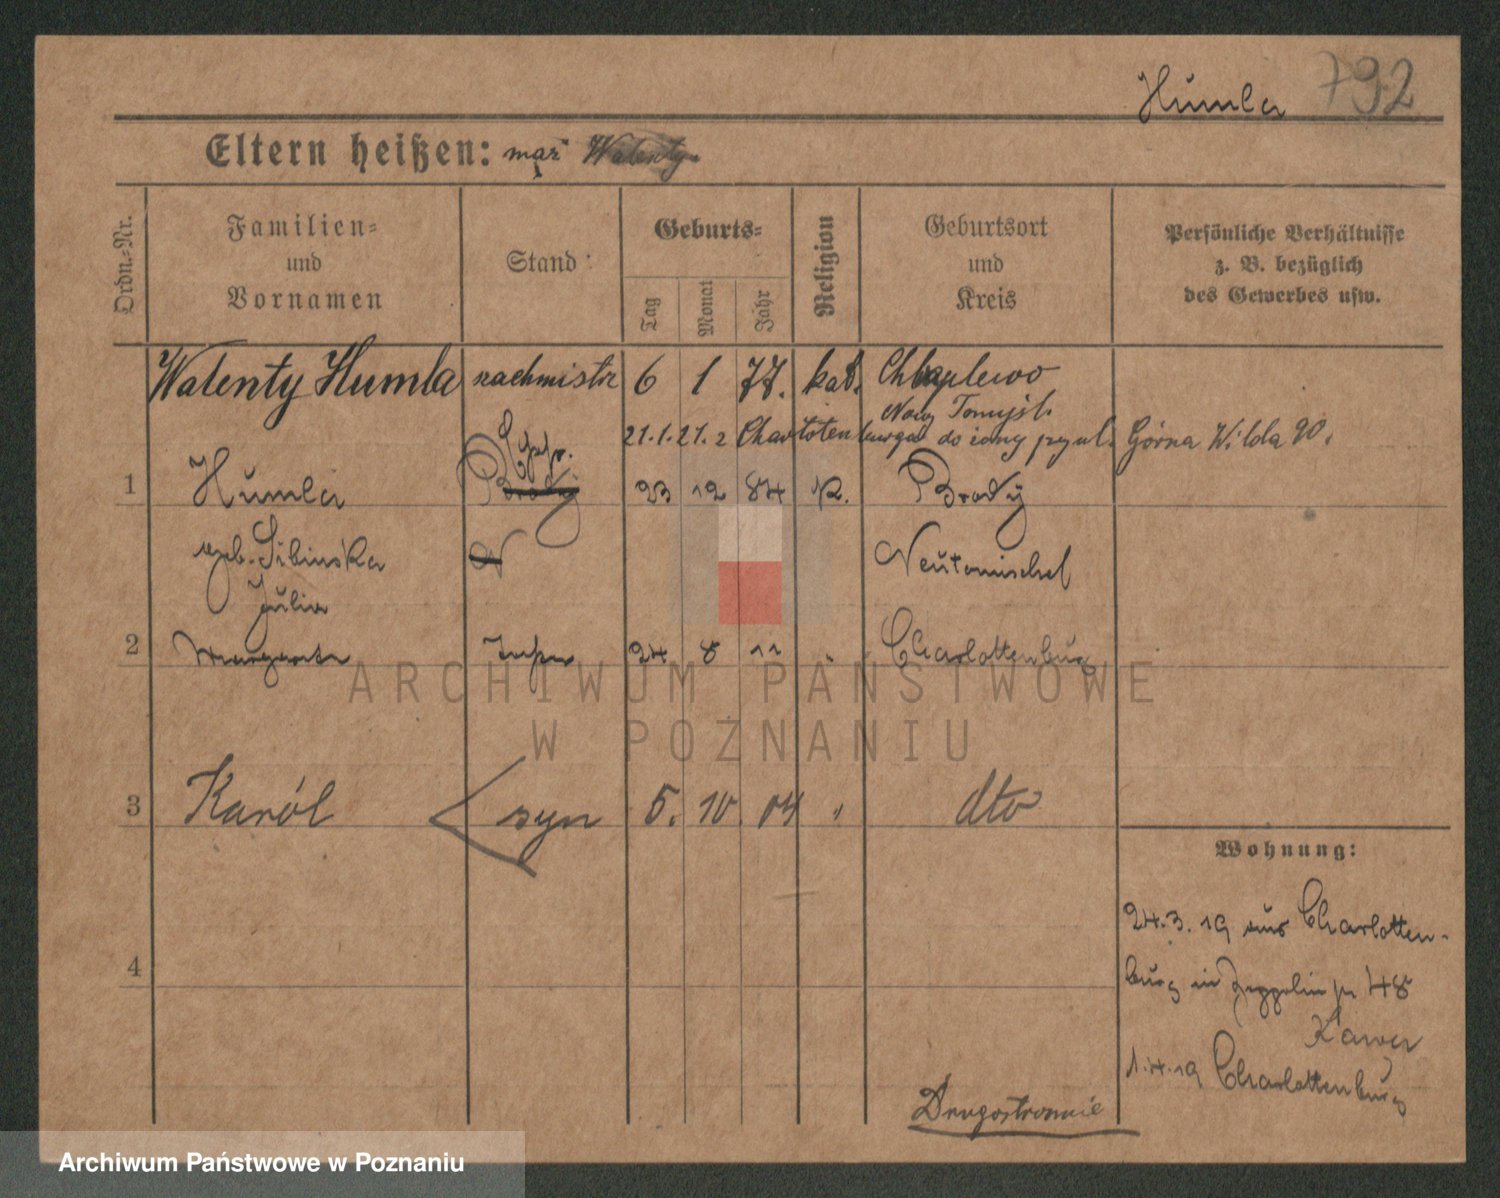 Humla 792
Eltern heißen: mąż Walenty
Ordn.-Nr.
Familien-
und
Vornamen
Stand
Geburts-
Tag
Monat
Jahr
Religion
Geburtsort
und
Kreis
Persönliche Verhältnisse
z. B. bezüglich
des Gewerbes usw.
Walenty Humla rachmistrz 6 1 77. kat. Chłaplewo
Nowy Tomyśl.
21.1.21. z Charlotenburga do żony przył. Górna Wilda 90.
1 Humla Brody 23 12 84 k. Brody
geb. Silinska Neutomischel
Julia
2 Margarete 24 8 11 Charlottenburg
3 Karól syn 5. 10 04 " dto
Wohnung:
24.3.19 aus Charlotten-
burg in Zeppelin 48
1.4.19 Charlottenburg
4
Drugostronnie
ARCHIWUM PAŃSTWOWE
W POZNANIU
Archiwum Państwowe w Poznaniu